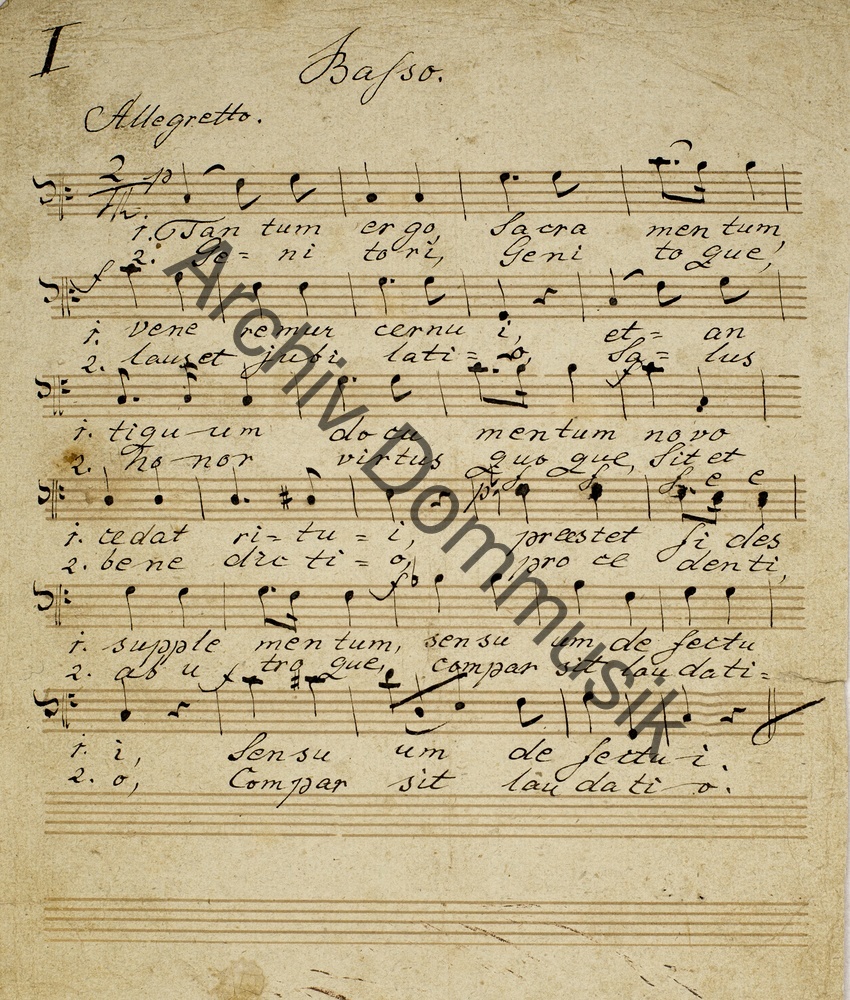 I
Basso.
Allegretto.
p
1. Tan tum ergo, Sacra mentum,
2. Ge= ni tori, Geni toque,
f
1. vene remur cernu i, et= an
2. lauset jubi lati= o, Sa= lus
f
1. tiqu um docu mentum novo
2. ho nor virtus quo que, Sit et
p.
1. cedat ri= tu = i, præstet fides
2. bene dic ti = o, pro ce denti,
f
1. supple mentum, sensu um de fectu
2. ab u tro que, compar sit lau dati=
f
1. i, Sensu um de fectu i.
2. o, Compar sit lau dati o.
Archiv Dommusik